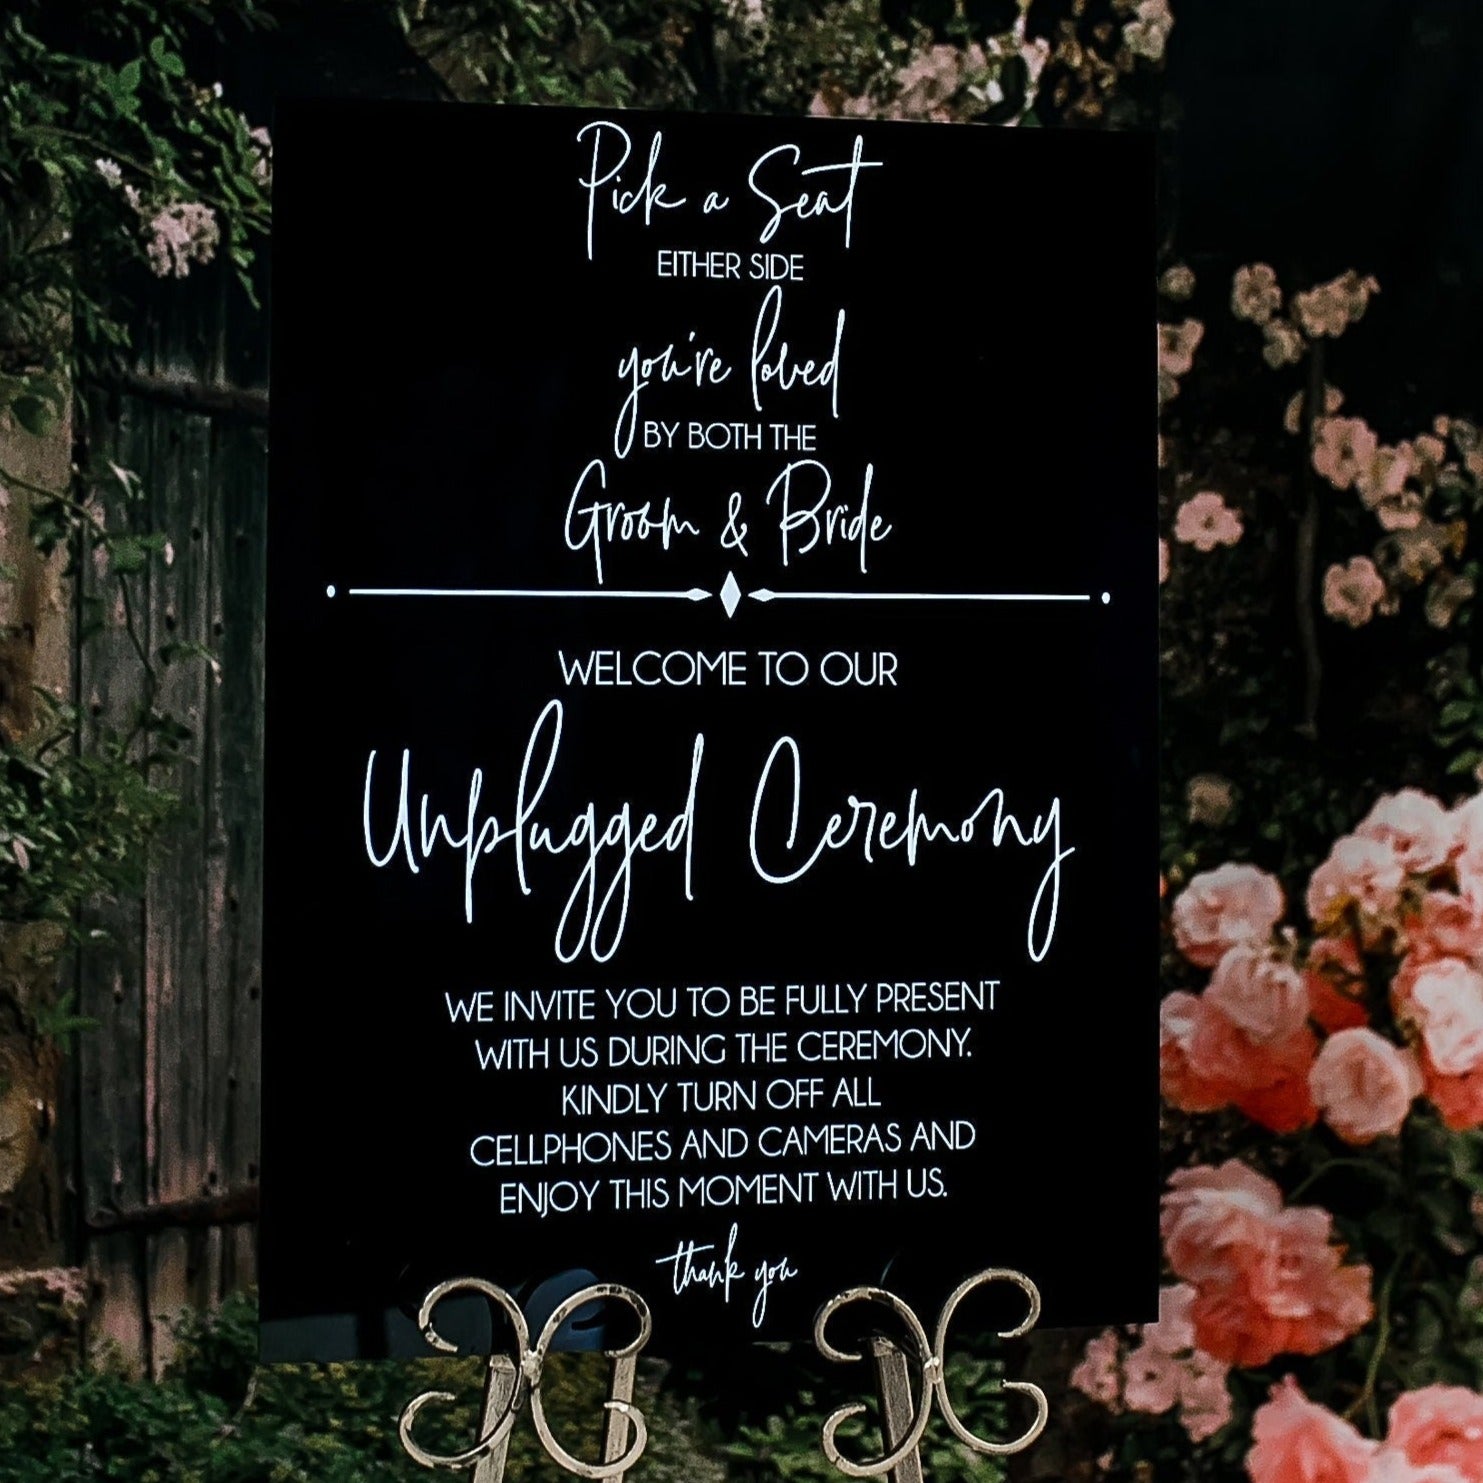 Pick a Seat
EITHER SIDE
you're loved
BY BOTH THE
Groom & Bride
WELCOME TO OUR
Unplugged Ceremony
WE INVITE YOU TO BE FULLY PRESENT
WITH US DURING THE CEREMONY.
KINDLY TURN OFF ALL
CELLPHONES AND CAMERAS AND
ENJOY THIS MOMENT WITH US.
thank you